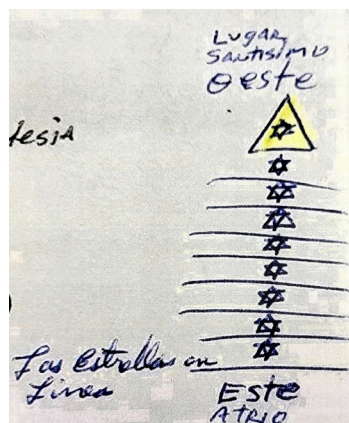 Lugar
Santisimo
Oeste
lesia
Las Estrellas en
Linea
Este
ATRIO